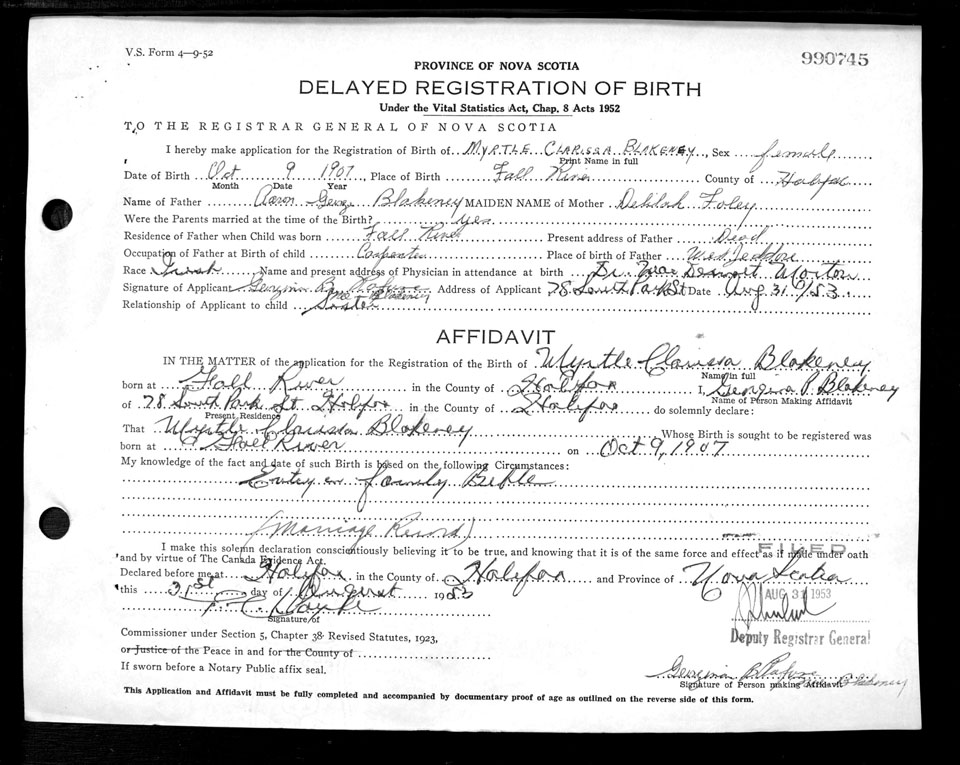 V.S. Form 4—9-52
990745
PROVINCE OF NOVA SCOTIA
DELAYED REGISTRATION OF BIRTH
Under the Vital Statistics Act, Chap. 8 Acts 1952
TO THE REGISTRAR GENERAL OF NOVA SCOTIA
I hereby make application for the Registration of Birth of MYRTLE CLARISSA BLAKENEY, Sex female
Print Name in full
Date of Birth Oct 9 1907, Place of Birth Fall River County of Halifax
Month Date Year
Name of Father Aaron George Blakeney MAIDEN NAME of Mother Delilah Foley
Were the Parents married at the time of the Birth? yes
Residence of Father when Child was born Fall River Present address of Father Dead
Occupation of Father at Birth of child Carpenter Place of birth of Father West Jeddore
Race Irish Name and present address of Physician in attendance at birth Dr Morton
Signature of Applicant Address of Applicant 78 South Park St Date Aug 31 1953
nee Blakeney
Relationship of Applicant to child Sister
AFFIDAVIT
IN THE MATTER of the application for the Registration of the Birth of Myrtle Clarissa Blakeney
Name in full
born at Fall River in the County of Halifax I, Georgina P. Blakeney
Name of Person Making Affidavit
of 78 South Park St Halifax in the County of Halifax do solemnly declare:
Present Residence
That Myrtle Clarissa Blakeney Whose Birth is sought to be registered was
born at Fall River on Oct 9, 1907
My knowledge of the fact and date of such Birth is based on the following Circumstances:
Entry in family Bible
(Marriage Record)
I make this solemn declaration conscientiously believing it to be true, and knowing that it is of the same force and effect as if made under oath
FILED
and by virtue of The Canada Evidence Act.
Declared before me at Halifax in the County of Halifax and Province of Nova Scotia
this 31st day of August 1953
AUG 31 1953
Signature of
Deputy Registrar General
Commissioner under Section 5, Chapter 38 Revised Statutes, 1923,
or Justice of the Peace in and for the County of
If sworn before a Notary Public affix seal.
Blakeney
Signature of Person making Affidavit
This Application and Affidavit must be fully completed and accompanied by documentary proof of age as outlined on the reverse side of this form.